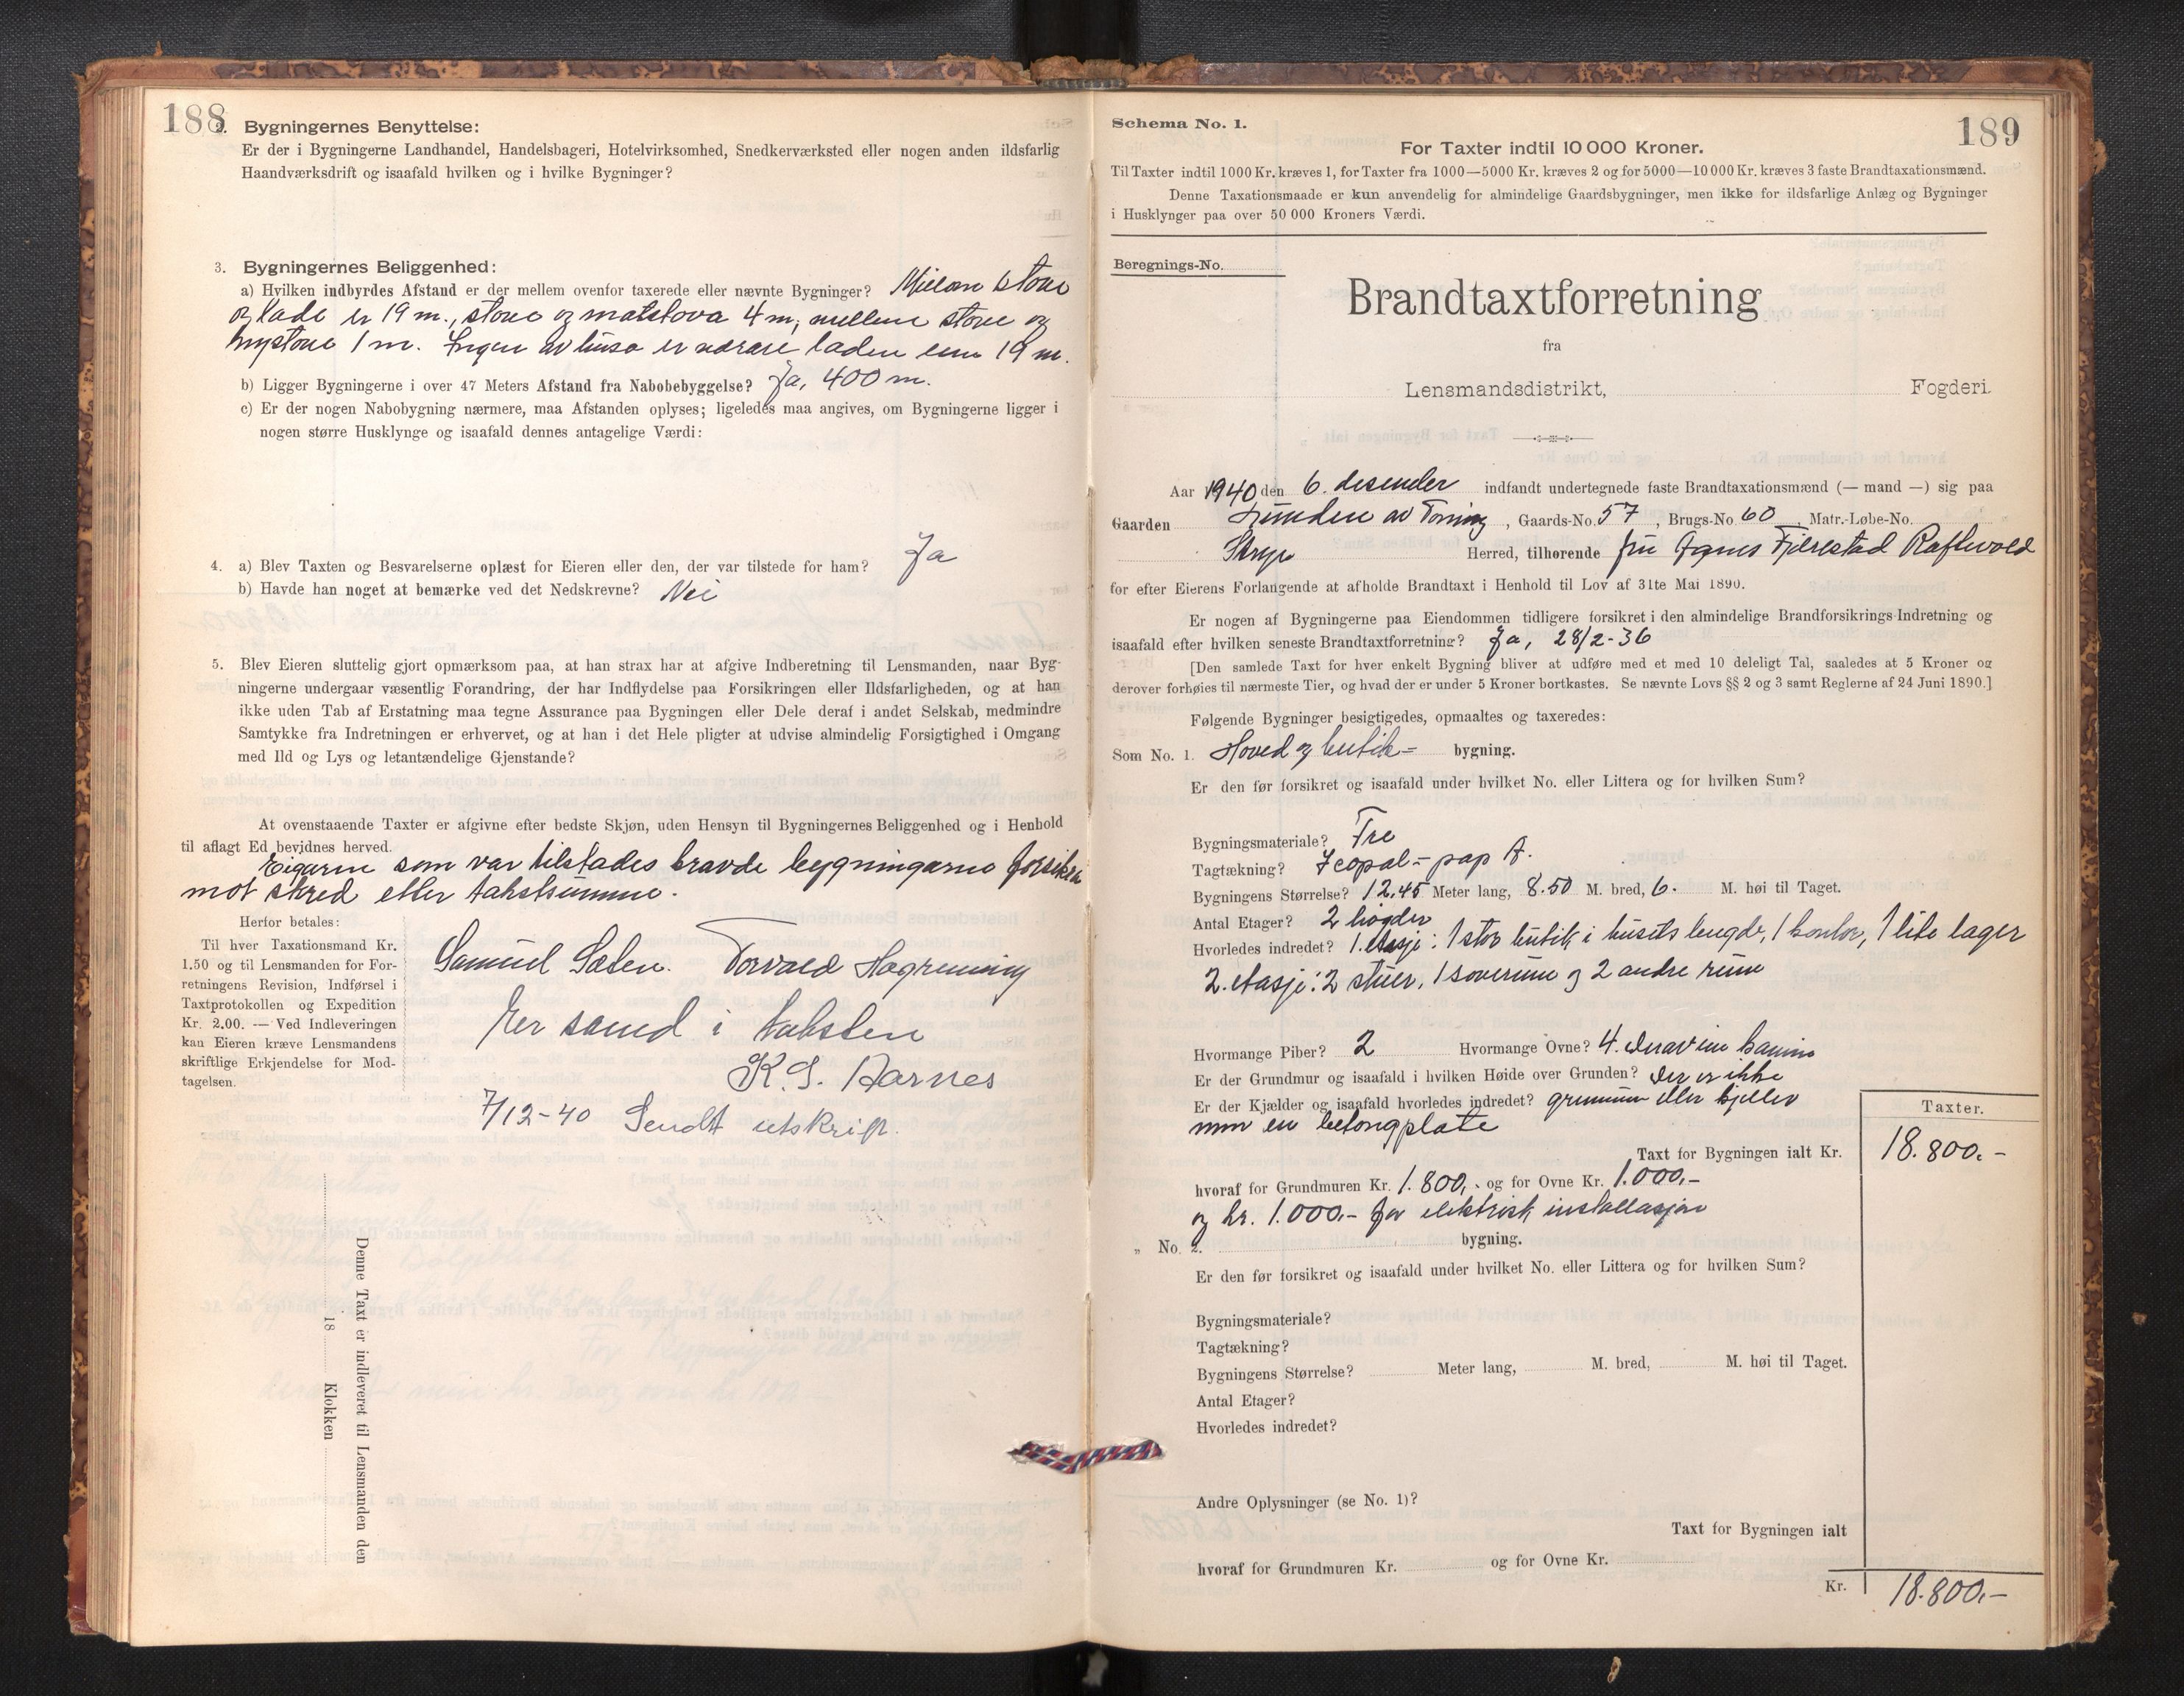 188
2. Bygningernes Benyttelse:
Er der i Bygningerne Landhandel, Handelsbageri, Hotelvirksomhed, Snedkerværksted eller nogen anden ildsfarlig
Haandværksdrift og isaafald hvilken og i hvilke Bygninger?
3. Bygningernes Beliggenhed:
a) Hvilken indbyrdes Afstand er der mellem ovenfor taxerede eller nævnte Bygninger? Millom stove
og lade er 19 m., stove og matstova 4 m, mellem stove og
nystove 1 m. Ingen av husa er nærare laden enn 19 m.
b) Ligger Bygningerne i over 47 Meters Afstand fra Nabobebyggelse? Ja, 400 m.
c) Er der nogen Nabobygning nærmere, maa Afstanden oplyses; ligeledes maa angives, om Bygningerne ligger i
nogen større Husklynge og isaafald dennes antagelige Værdi:
4. a) Blev Taxten og Besvarelserne oplæst for Eieren eller den, der var tilstede for ham? Ja
b) Havde han noget at bemærke ved det Nedskrevne? Nei
5. Blev Eieren sluttelig gjort opmærksom paa, at han strax har at afgive Indberetning til Lensmanden, naar Byg-
ningerne undergaar væsentlig Forandring, der har Indflydelse paa Forsikringen eller Ildsfarligheden, og at han
ikke uden Tab af Erstatning maa tegne Assurance paa Bygningen eller Dele deraf i andet Selskab, medmindre
Samtykke fra Indretningen er erhvervet, og at han i det Hele pligter at udvise almindelig Forsigtighed i Omgang
med Ild og Lys og letantændelige Gjenstande?
At ovenstaaende Taxter er afgivne efter bedste Skjøn, uden Hensyn til Bygningernes Beliggenhed og i Henhold
til aflagt Ed bevidnes herved.
Eigaren som var tilstades kravde bygningarne forsikra
mot skred etter takstsumme.
Herfor betales:
Til hver Taxationsmand Kr.
1.50 og til Lensmanden for For-
retningens Revision, Indførsel i
Taxtprotokollen og Expedition
Kr. 2.00. — Ved Indleveringen
kan Eieren kræve Lensmandens
skriftlige Erkjendelse for Mod-
tagelsen.
Samuel Sæten. Torvald Hagrenning
Er samd i taksten
K. S. Aarnes
7/12-40 Sendt utskrift.
Denne Taxt er indleveret til Lensmanden den
18 Klokken
189
Schema No. 1.
For Taxter indtil 10 000 Kroner.
Til Taxter indtil 1000 Kr. kræves 1, for Taxter fra 1000—5000 Kr. kræves 2 og for 5000—10 000 Kr. kræves 3 faste Brandtaxationsmænd.
Denne Taxationsmaade er kun anvendelig for almindelige Gaardsbygninger, men ikke for ildsfarlige Anlæg og Bygninger
i Husklynger paa over 50 000 Kroners Værdi.
Beregnings-No.
Brandtaxtforretning
fra
Lensmandsdistrikt, Fogderi.
Aar 1940, den 6. desember indfandt undertegnede faste Brandtaxationsmænd (— mand —) sig paa
Gaarden Lunden av Tonning, Gaards-No. 57, Brugs-No. 60, Matr.-Løbe-No.
Stryn Herred, tilhørende fru Agnes Fjelrestad Raftevold
for efter Eierens Forlangende at afholde Brandtaxt i Henhold til Lov af 31te Mai 1890.
Er nogen af Bygningerne paa Eiendommen tidligere forsikret i den almindelige Brandforsikrings-Indretning og
isaafald efter hvilken seneste Brandtaxtforretning? Ja, 28/2-36
[Den samlede Taxt for hver enkelt Bygning bliver at udføre med et med 10 deleligt Tal, saaledes at 5 Kroner og
derover forhøies til nærmeste Tier, og hvad der er under 5 Kroner bortkastes. Se nævnte Lovs §§ 2 og 3 samt Reglerne af 24 Juni 1890.]
Følgende Bygninger besigtigedes, opmaaltes og taxeredes:
Som No. 1. Hoved og butik- bygning.
Er den før forsikret og isaafald under hvilket No. eller Littera og for hvilken Sum?
Bygningsmateriale? Tre
Tagtækning? Icopal-pap A.
Bygningens Størrelse? 12.45 Meter lang, 8.50 M. bred, 6. M. høi til Taget.
Antal Etager? 2 høgder
Hvorledes indredet? 1. etasje: 1 stor butik i husets lengde, 1 kontor, 1 lite lager
2. etasje: 2 stuer, 1 soverum og 2 andre rum
Hvormange Piber? 2 Hvormange Ovne? 4. derav ein kamin
Er der Grundmur og isaafald i hvilken Høide over Grunden? Der er ikke
Er der Kjælder og isaafald hvorledes indredet? grunnmur eller kjeller
men en betongplate
Taxter.
Taxt for Bygningen ialt Kr. 18.800.-
hvoraf for Grundmuren Kr. 1.800,- og for Ovne Kr. 1.000,-
og kr. 1.000,- for elektrisk installasjon
„ No. 2. bygning.
Er den før forsikret og isaafald under hvilket No. eller Littera og for hvilken Sum?
Bygningsmateriale?
Tagtækning?
Bygningens Størrelse? Meter lang, M. bred, M. høi til Taget.
Antal Etager?
Hvorledes indredet?
Andre Oplysninger (se No. 1)?
Taxt for Bygningen ialt
hvoraf for Grundmuren Kr. og for Ovne Kr.
Kr. 18.800,-